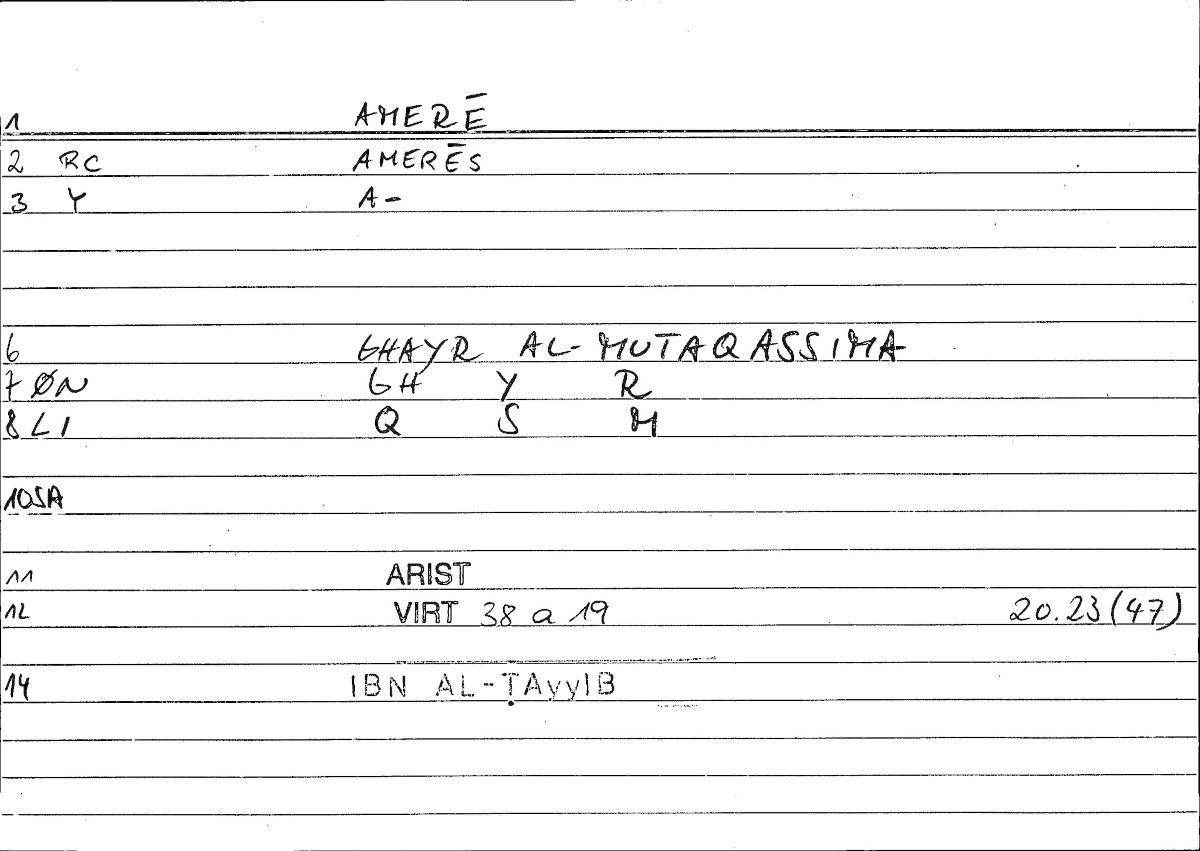 1 AMERĒ
2 RC AMERĒS
3 Y A-
6 GHAYR AL-MUTAQASSIMA
7 ØN GH Y R
8 LI Q S M
10 SA
11 ARIST
12 VIRT 38 a 19 20.23 (47)
14 IBN AL-ṬAyyIB